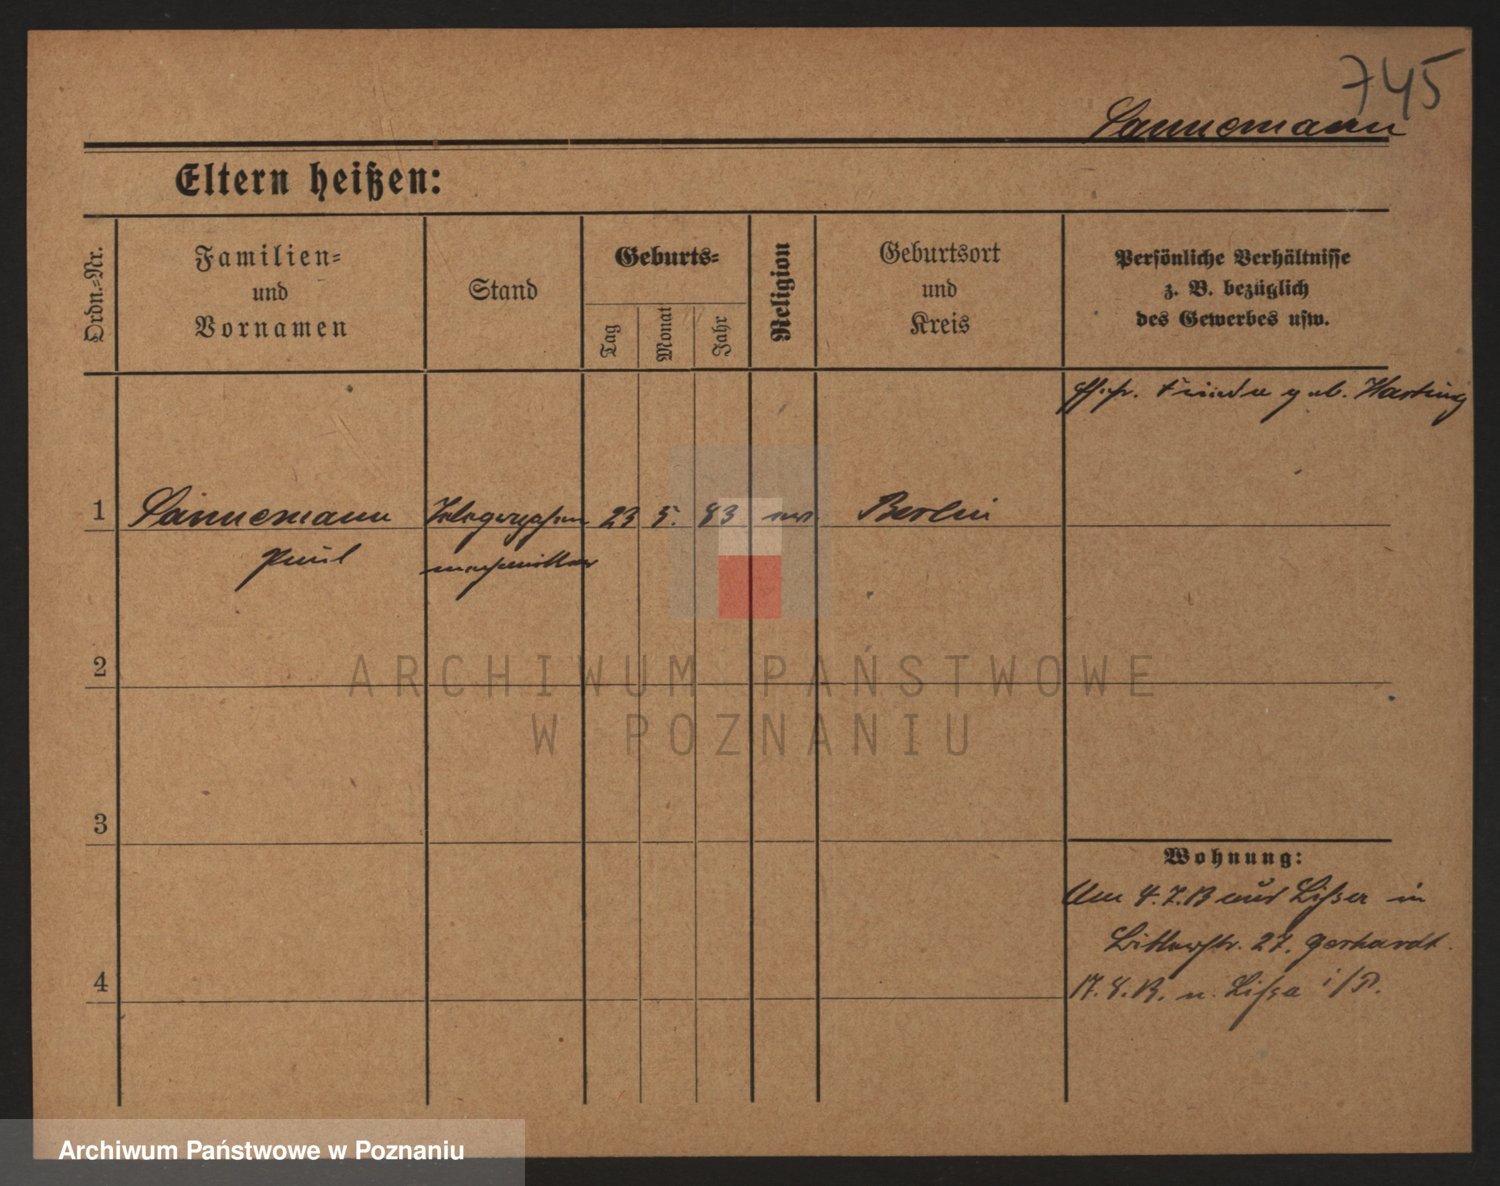 745
Lannemann
Eltern heißen:
Ordn.=Nr.
Familien=
und
Vornamen
Stand
Geburts=
Tag
Monat
Jahr
Religion
Geburtsort
und
Kreis
Persönliche Verhältnisse
z. B. bezüglich
des Gewerbes usw.
geb. Harting
1
Lannemann
Paul
Telegraphen
23
5.
83
Berlin
2
3
4
Wohnung:
Am 4.7.13 aus Lissa in
27. Gerhardt.
17.8.13. n. Lissa i/P.
ARCHIWUM PAŃSTWOWE
W POZNANIU
Archiwum Państwowe w Poznaniu